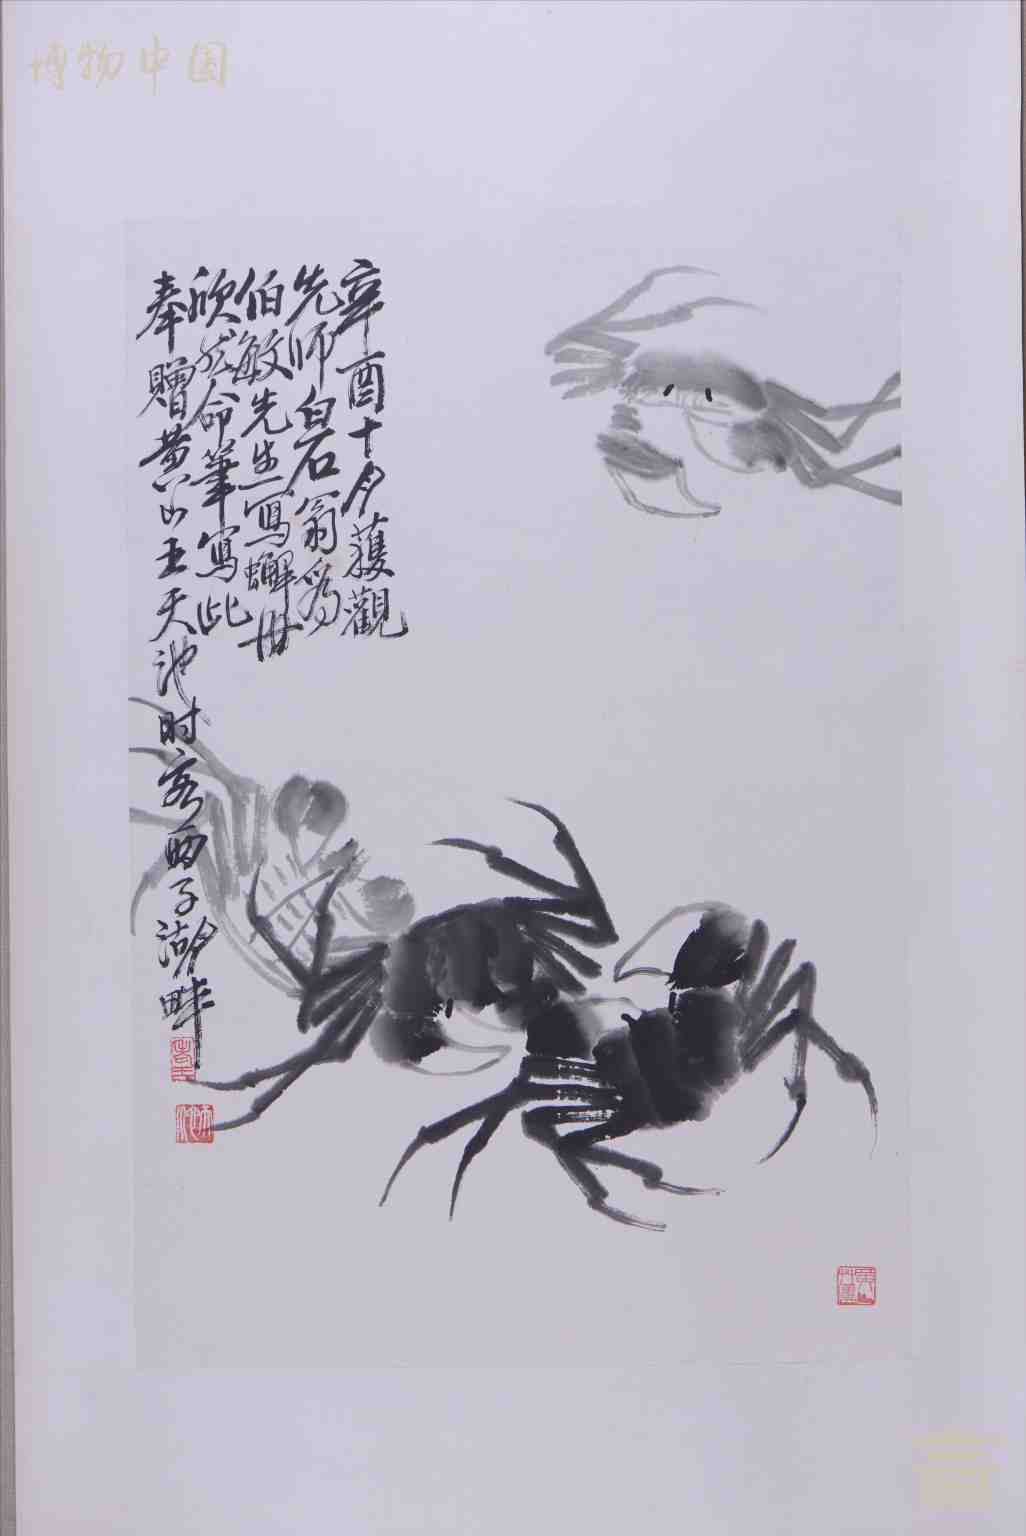 博物中国
辛酉十月獲觀
先师白石翁爲
伯敏先生寫蠏册
欣然命筆寫此
奉贈黄山王天池时客西子湖畔